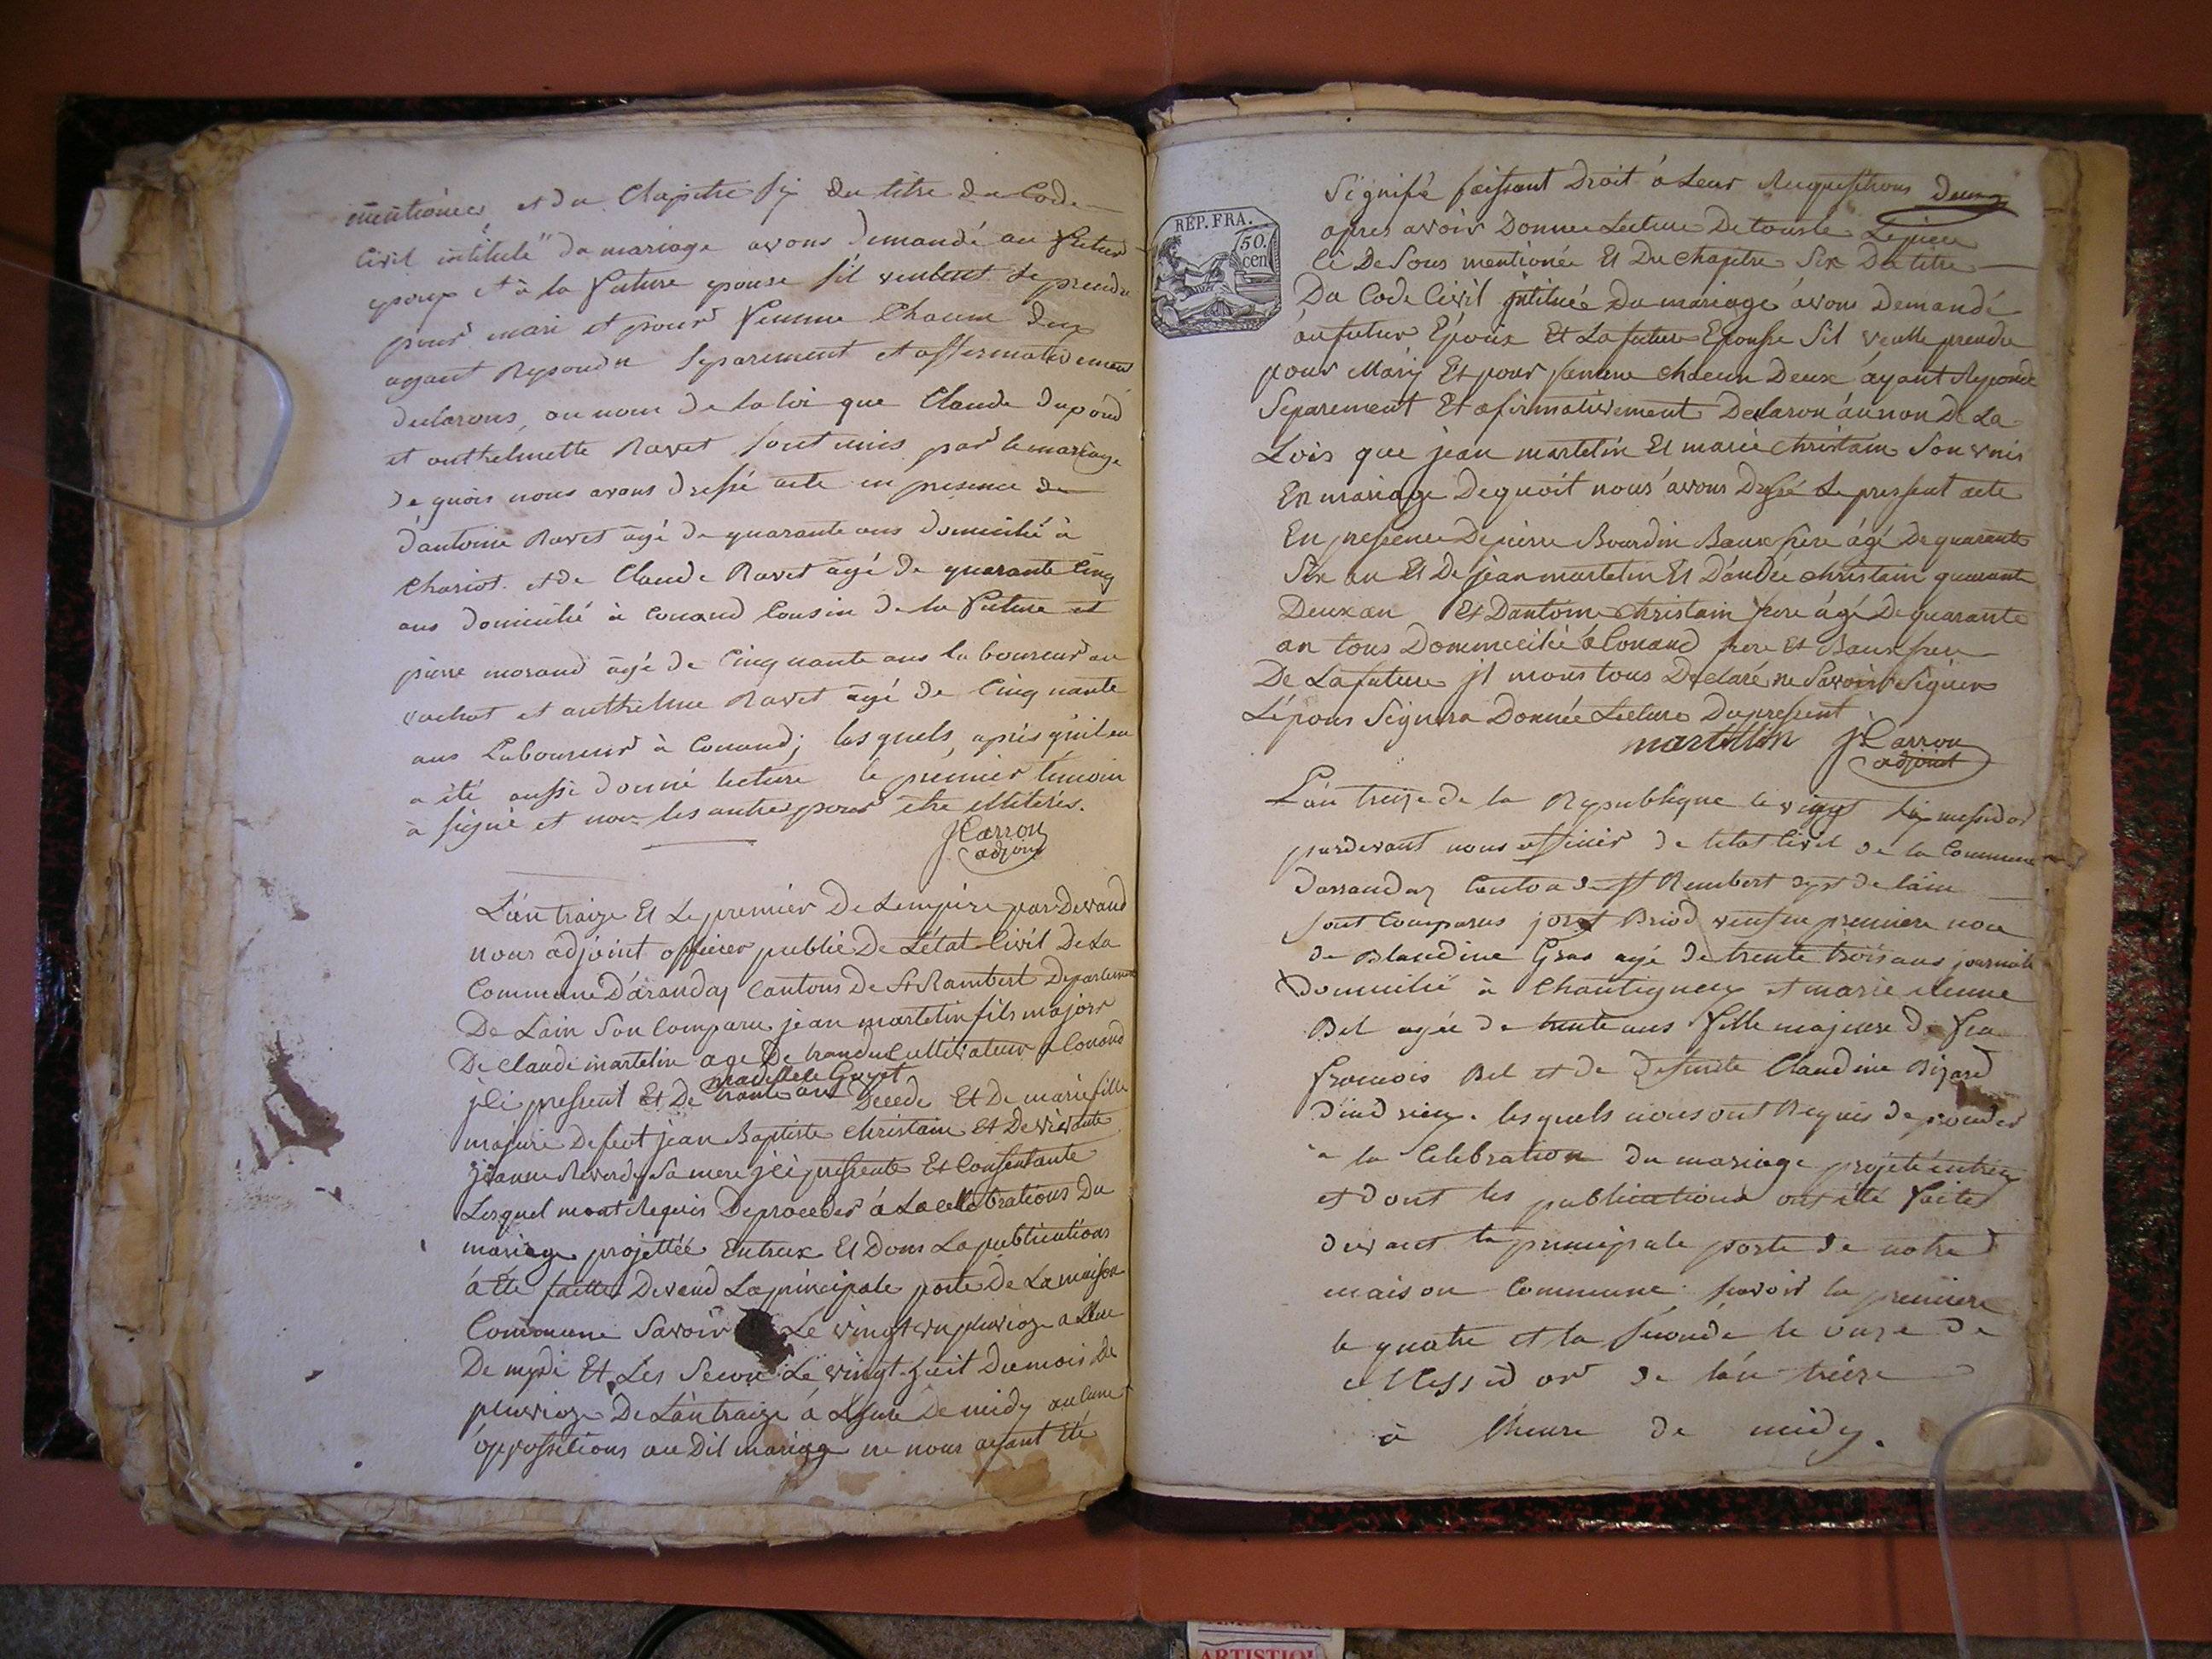 mentionées et du Chapitre six du titre du Code
Civil intitulé du mariage avons demandé au futur
epoux et à la future epouse s'il veulent se prendre
pour mari et pour femme Chacun deux
ayant Repondu Separement et affirmativement
declarons, au nom de la loi que Claude
et anthelmette Ravet sont unis par le mariage
de quois nous avons dressé acte en presence de
d'antoine Ravet agé de quarante ans domicilié à
Chariot. et de Claude Ravet agé de quarante Cinq
ans domicilié à Conand Cousin de la future et
pierre morand agé de Cinquante ans laboureur au
vachat et anthelme Ravet agé de Cinquante
ans Laboureur à Conand; les quels, après qu'il en
a été aussi donné lecture le premier temoin
à signé et non les autres pour être illiterés.
J Carron
adjoint
L'an traize Et Le premier De Lempire par Devand
nous adjoint officier publie De L'état Civil De La
Commune D'arandas Cantons De St Rambert Departement
De Lain Son Comparu jean martelin fils majors
De Claude martelin age De Cultivateur a Conand
madellele Guyet
jci pressent Et De trante ans Decede Et De marie fille
majure De feut jean Baptiste christain Et De vivante
jeanne Reverdy Sa mere jci pressente Et Consentante
Lesquel mont Requis De proceder á La cellebrations Du
mariage projettéé Entreux Et Dons La publications
á Eté faitte Devand La principale porte De La maison
Commune Savoir Le vingt un pluvioze a Lheure
De mydi Et Les Secon Le vingt-huit Du mois De
pluvioze De L'an traize á L'heure De midy aucune
oppossitions au Dit mariage ne nous ayant Eté
REP. FRA.
50.
cen
Signifié faissant Droit á Leur Requisitions
apres avoir Donnee Lecture De touste Le piece
Ci De Sous mentionée Et Du chapitre Six Du titre
Du Code Civil jntitulée Du mariage ávons Demandé
áu futur Epoux Et La future Epousse Sil veulle prendre
pour Mary Et pour famme chacun Deux áyant Reponde
Separement Et afirmativement Declaron áu non De La
Lois que jean martelin Et marie christain Son unis
En mariage De quoit nous ávons Dressé Le pressent acte
En pressence De pierre Bourdin Baux frere ágé De quarante
Six an Et De jean martelin Et D'andre christain quarante
Deux an Et Dantoine christain frere ágé De quarante
an tous Dommecilié á Conand frere Et Baux frere
De La future jl mons tous Declaré ne Savoir Signer
L'épous Signera Donnée Lecture Du pressent
martellin J Carron
adjoint
L'an treize de la Republique le vingt six messidor
pardevant nous officier de létat Civil de la Commune
darandas Canton de St Rembert dept de lain
sont Comparus Briod veuf en premiere noce
de Blandine Gras agé de trente trois ans
domicilié à Chantignieu et marie etienne
Bel agée de trente ans fille majeure de feu
francois Bel et de defunte Claudine Bizard
d'indrieu. lesquels nous ont Requis de proceder
a la Celebration du mariage projeté entreux
et dont les publications ont été faites
devant la principale porte de notre
maison Commune. savoir la premiere
le quatre et la seconde le onze de
Messidor de l'an treize
à l'heure de midy.